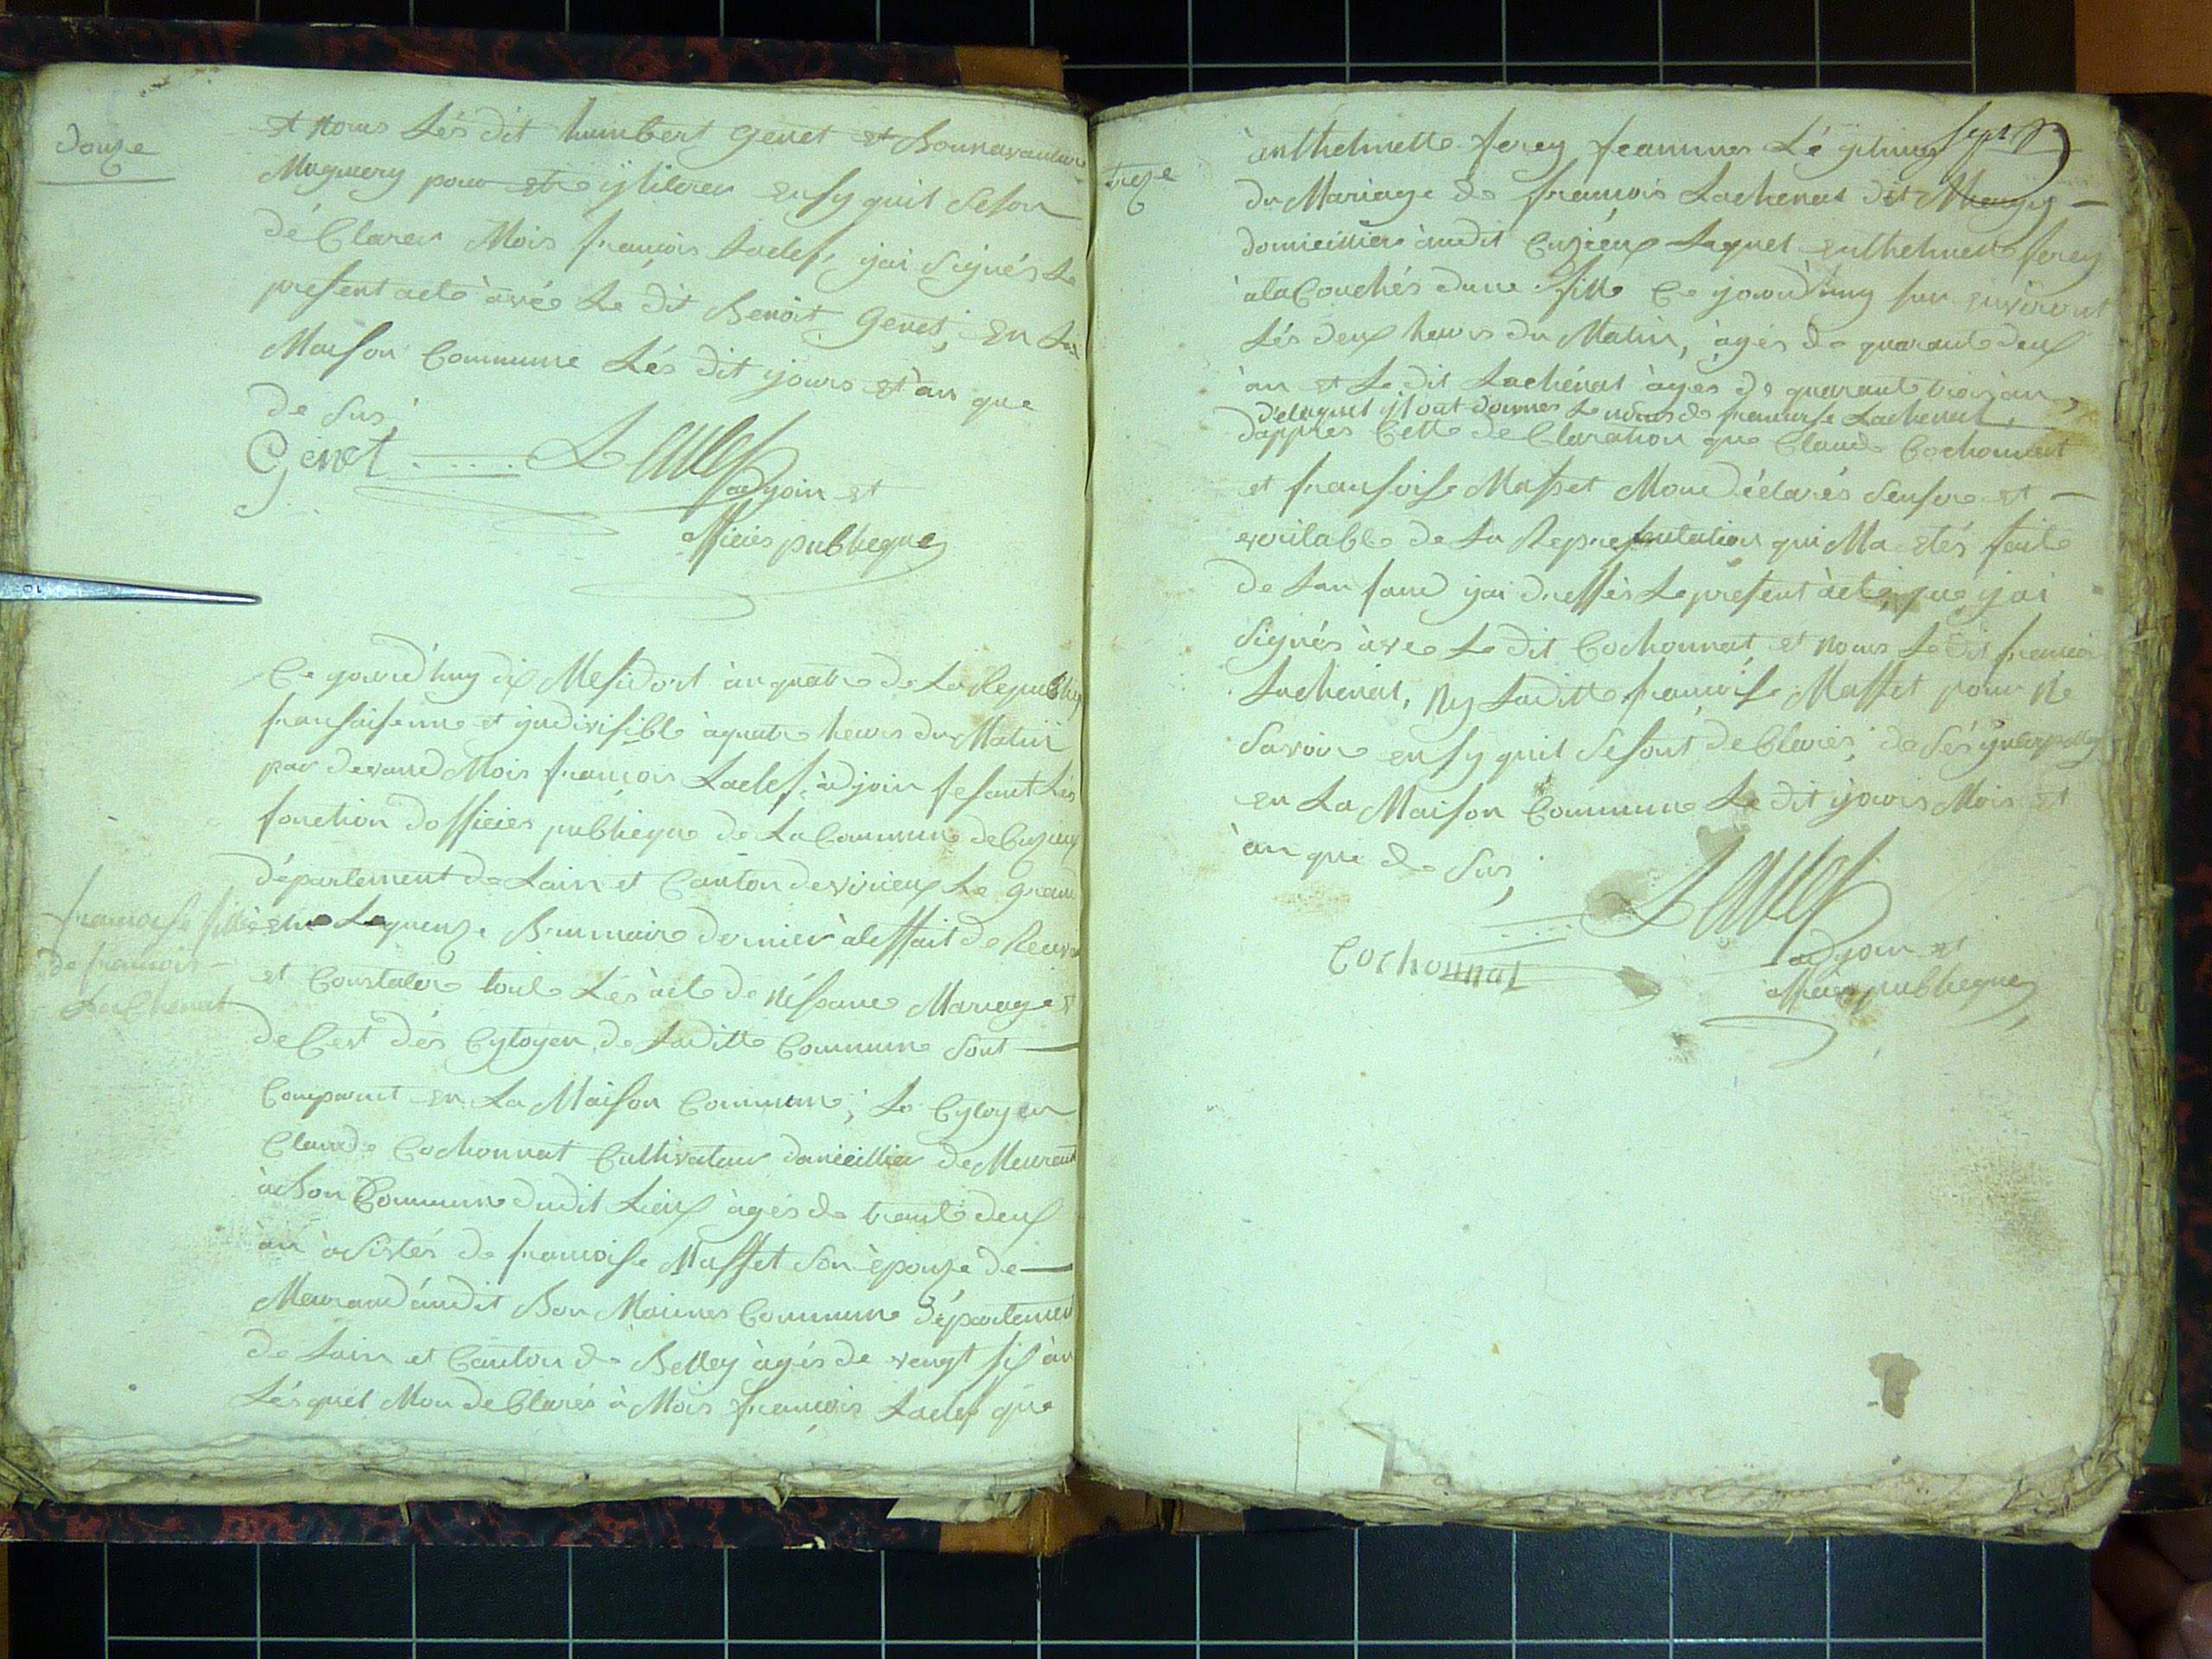 douze
et nom Lés dit humbert Genet et Bonnavanture
Mugnery pour etre ylliterer ensy quil seson
déClarer Mois françois Laclef, jai signés Le
present acte àvéc Le dit Benoit Genet, En La
Maison Commune Lés dit jours et àn que
de sus,
Genet Laclef
adjoin et
officies publieque
françoise fille
de françois
Lachenat
Ce yourd'huy dix Mesidort àn quatre de La Republique
fransaisenne et jndivisible à quatre heures du Matin
par devand Mois françois Laclef, àdjoin fesant Lés
fonction dofficies publieque de La Commune de Cuzieux
département de Lain et Canton de virieux Le Grand
Le quinze Brumaire dernier àleffait de Recevoir
et Constater toute Lés àcte de nésance Mariage et
deCest dés Cytoyen de Laditte Commune sont
Comparut en La Maison Commune; Le Cytoyen
Claude Cochonnat Cultivateur domicillier de Meurand
àBon Commune dudit Lieux àgés de trante deux
àn àsistés de françoise Masset son èpouze de
Meurand àudit Bon Maimes Commune département
de Lain et Canton de Belley àgés de vengt six àn
Lésquel Mon deClarés à Mois françois Laclef que
treze
Sept
ànthelmette ferey feammes Légitimes
du Mariage de françois Lachenat dit
domicillier àudit Cuzieux Laquel enthelmette ferey
àlaCouchés dune fille Ce jourd'huy sur environt
Lés deux heures du Matin, àgés de quarante deux
àn et Le dit Lachénat àgés de quarante trois àn,
delaquel ylont donnes Le nom de françoise Lachenat,
dappres Cette deClaration que Claude Cochonnat
et fransoise Masset Mon déclarés senserre et
veritable de La Representation qui Ma etés faite
de Lanfand jai dressés Le present àcte, que jai
signés àvec Le dit Cochonnat et nom Le dit françois
Lachenat, Ny Laditte françoise Masset pour Ne
savoir ensy quil sesont deClarés, de Lés
en La Maison Commune Le dit jours Mois et
àn que de sus,
Laclef
Cochonnat
adjoin et
officies publieque